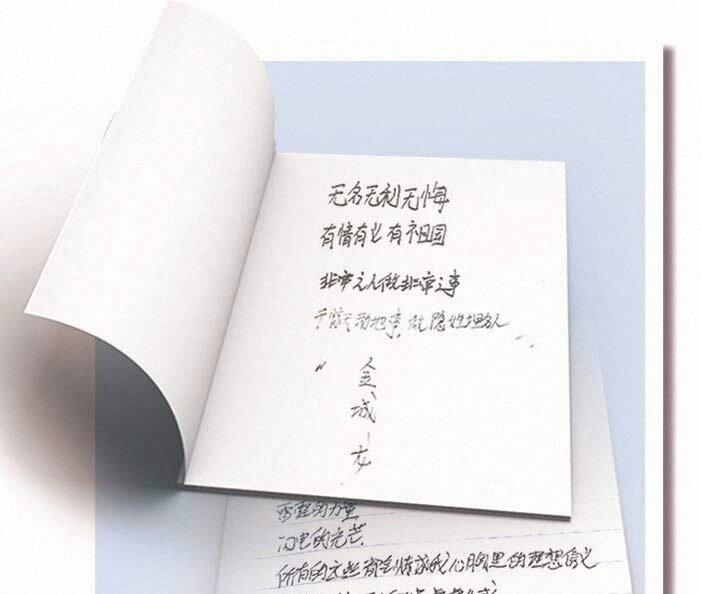 无名无利无悔
有情有义有祖国
非常之人做非常之事
干惊天动地事 做隐姓埋名人
金
城
雷霆的力量
闪电的光芒
所有的这些都会情 我心胸里的理想信义